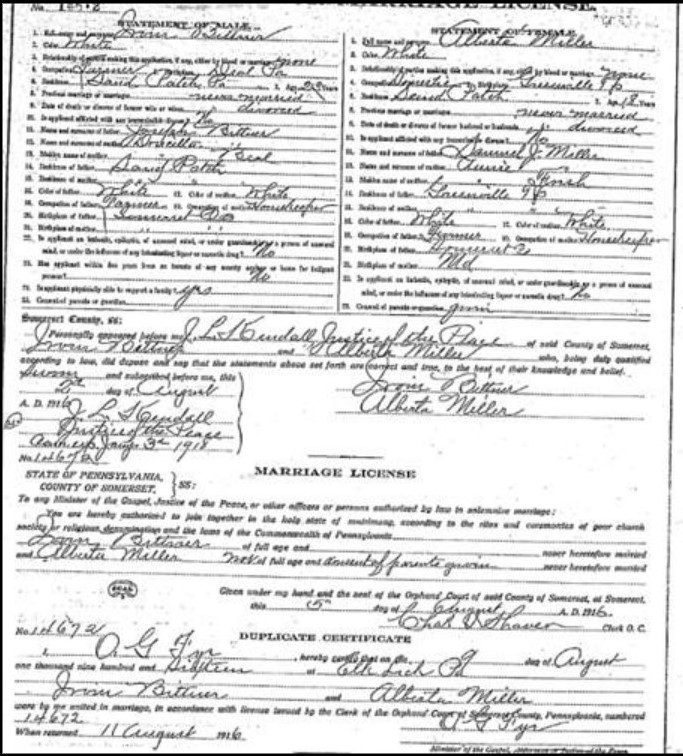 MARRIAGE LICENSE.
STATEMENT OF MALE.
1. Full name and surname Irvin Bittner
2. Color White
3. Relationship of parties making this application, if any, either by blood or marriage none
4. Occupation Farmer Birthplace Deal Pa
5. Residence Sand Patch, Pa Age Years
6. Previous marriage or marriages never married
9. Date of death or divorce of former wife or wives divorced
10. Is applicant afflicted with any transmissible disease? No
11. Name and surname of father Joseph Bittner
12. Name and surname of mother Drucilla "
13. Maiden name of mother Beal
14. Residence of father Sand Patch
15. Residence of mother " "
16. Color of father White 17. Color of mother White
18. Occupation of father Farmer 19. Occupation of mother Housekeeper
20. Birthplace of father Somerset Co
21. Birthplace of mother " "
22. Is applicant an imbecile, epileptic, of unsound mind, or under guardianship as a person of unsound
mind, or under the influence of any intoxicating liquor or narcotic drug? No
23. Has applicant within five years been an inmate of any county asylum or home for indigent
persons? No
24. Is applicant physically able to support a family? yes
25. Consent of parents or guardian
STATEMENT OF FEMALE.
1. Full name and surname Alberta Miller
2. Color White
3. Relationship of parties making this application, if any, either by blood or marriage none
4. Occupation Domestic Birthplace Greenville Tp
5. Residence Sand Patch Age 18 Years
Previous marriage or marriages never married
Date of death or divorce of former husband or husbands divorced
Is applicant afflicted with any transmissible disease? No
Name and surname of father Samuel J. Miller
Name and surname of mother Annie "
Maiden name of mother
Residence of father Greenville Tp
Residence of mother " "
Color of father White 17. Color of mother White
Occupation of father Farmer Occupation of mother Housekeeper
Birthplace of father Somerset Co
Birthplace of mother Md
Is applicant an imbecile, epileptic, of unsound mind, or under guardianship as a person of unsound
mind, or under the influence of any intoxicating liquor or narcotic drug? No
Consent of parents or guardian given
Somerset County, ss:
Personally appeared before me J. L. S Kendall, Justice of the Peace of said County of Somerset,
Irvin Bittner and Alberta Miller who, being duly qualified
according to law, did depose and say that the statements above set forth are correct and true, to the best of their knowledge and belief.
Sworn and subscribed before me, this
2d day of August
A. D. 1916
Irvin Bittner
Alberta Miller
J. L. S Kendall
Justice of the Peace
Com exp Jany 3d 1918
No. 14672
MARRIAGE LICENSE
STATE OF PENNSYLVANIA,
COUNTY OF SOMERSET, SS:
To any Minister of the Gospel, Justice of the Peace, or other officers or persons authorized by law to solemnize marriage:
You are hereby authorized to join together in the holy state of matrimony, according to the rites and ceremonies of your church
society or religious denomination and the laws of the Commonwealth of Pennsylvania
Irvin Bittner of full age and never heretofore married
and Alberta Miller not of full age and consent of parents given never heretofore married
SEAL
Given under my hand and the seal of the Orphans' Court of said County of Somerset, at Somerset,
this 5 day of August A. D. 1916.
Chas. Shaver Clerk O. C.
No. 14672
DUPLICATE CERTIFICATE
I, A G , hereby certify that on the 9 day of August
one thousand nine hundred and Sixteen at Elk Lick Pa
Irvin Bittner and Alberta Miller
were by me united in marriage, in accordance with license issued by the Clerk of the Orphans' Court of Somerset County, Pennsylvania, numbered
14672
When returned 11 August 1916
Minister of the Gospel,